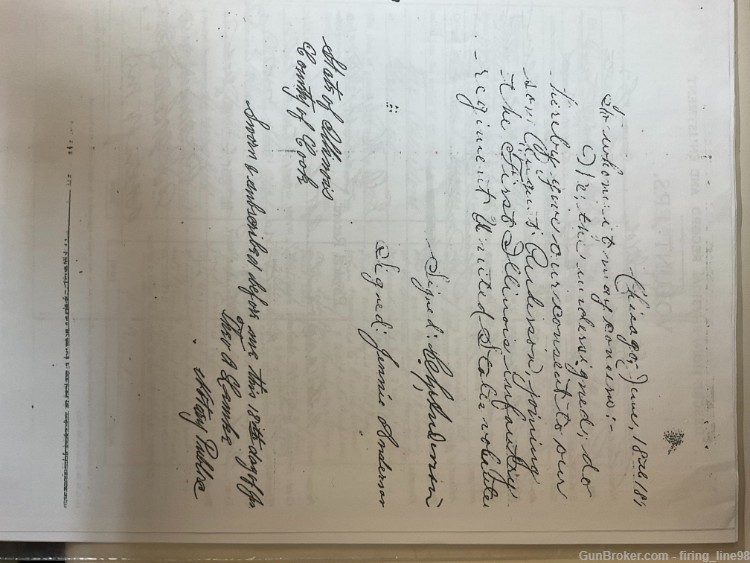 Chicago, June, 18th 189
To whom it may concern:-
We, the undersigned, do
hereby give our consent to our
son August Anderson, joining
the First Illinois infantry
regiment United States volunteer
Signed: Anderson
Signed: Jennie Anderson
State of Illinois
County of Cook
Sworn & subscribed before me this 18th day of
Notary Public
GunBroker.com - firing_line98